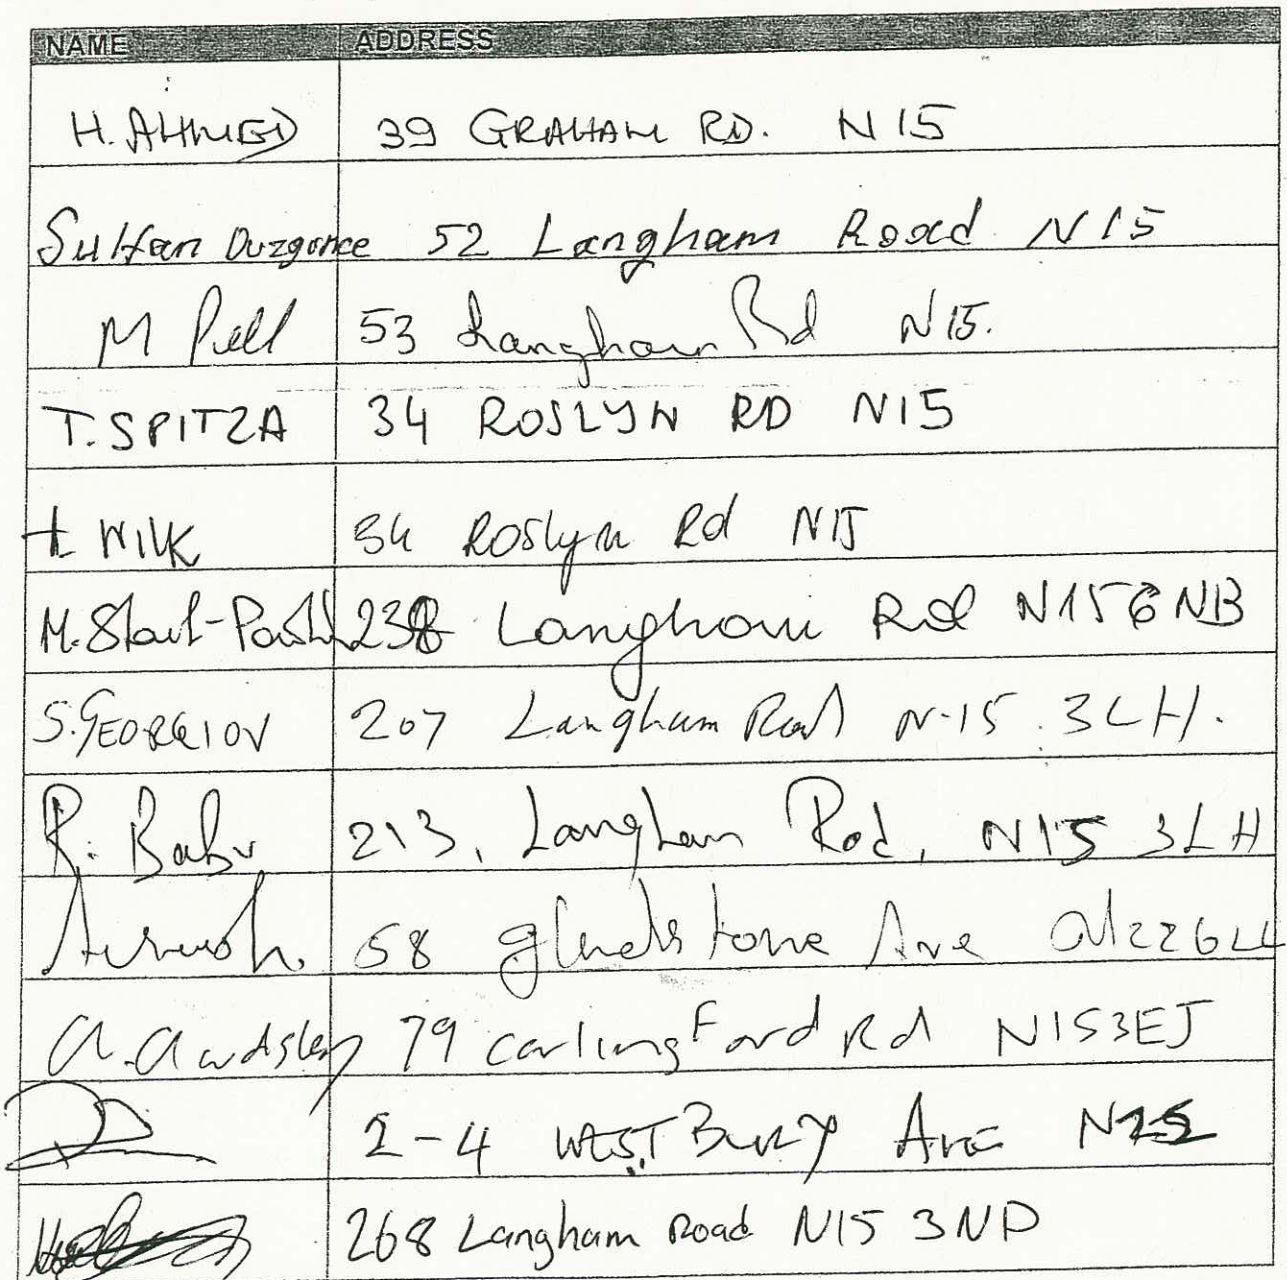 NAME ADDRESS
H. AHMED 39 GRAHAM RD. N15
Sultan Duzgonce 52 Langham Road N15
M Pell 53 Langham Rd N15.
T. SPITZA 34 ROSLYN RD N15
WILK 34 Roslyn Rd N15
M. 238 Langham Rd N15 6NB
S. GEORGIOV 207 Langham Road N-15 3LH.
R. Babu 213, Langham Rod, N15 3LH
58 gladstone Ave N22 6LL
A. Aardsley 79 carlingford Rd N15 3EJ
2-4 WESTBURY Ave
268 Langham Road N15 3NP